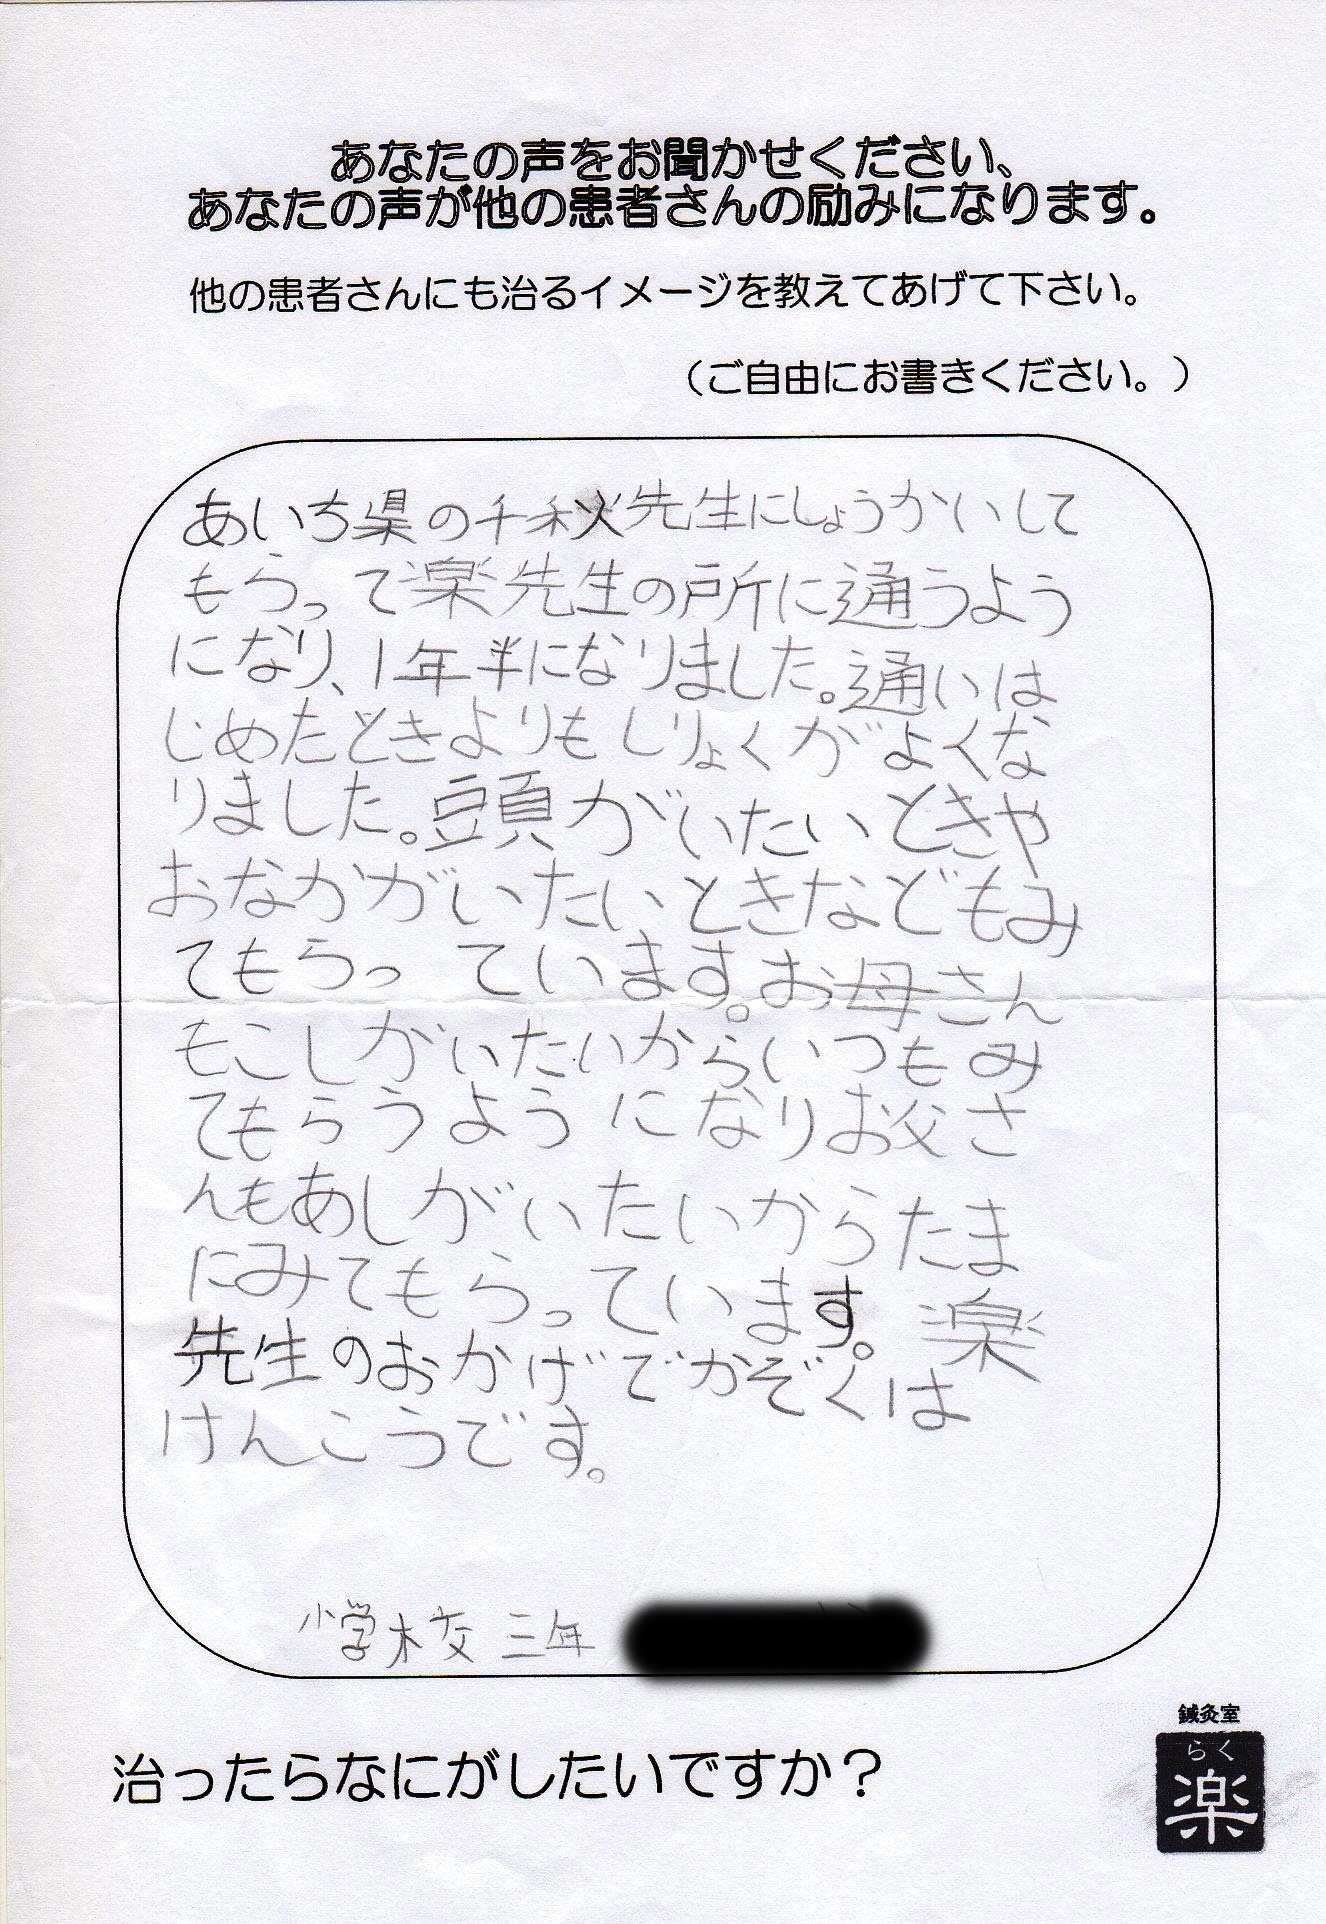 あなたの声をお聞かせください、
あなたの声が他の患者さんの励みになります。
他の患者さんにも治るイメージを教えてあげて下さい。
（ご自由にお書きください。）
あいち県の千秋先生にしょうかいして
もらって楽先生の所に通うよう
になり、1年半になりました。通いは
じめたときよりもしりょくがよくな
りました。頭がいたいときや
おなかがいたいときなどもみ
てもらっています。お母さん
もこしがいたいからいつもみ
てもらうようになりお父さ
んもあしがいたいからたま
にみてもらっています。楽
先生のおかげでかぞくは
けんこうです。
小学校三年
治ったらなにがしたいですか？
鍼灸室
らく
楽